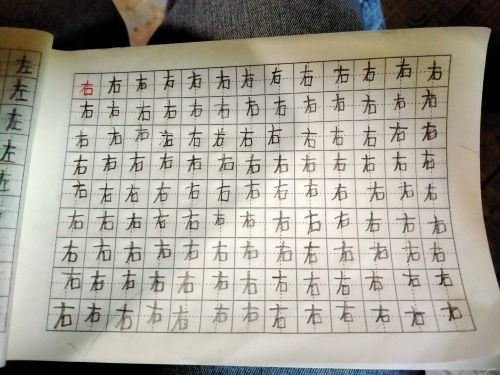 左
左
左
左
右右右右右右右右右右右右右
右右右右右右右右右右右右右
右右右右右右右右右右右右右
右右右右右右右右右右右右右
右右右右右右右右右右右右右
右右右右右右右右右右右右右
右右右右右右右右右右右右右
右右右右右右右右右右右右右
右右右右右右右右右右右右右